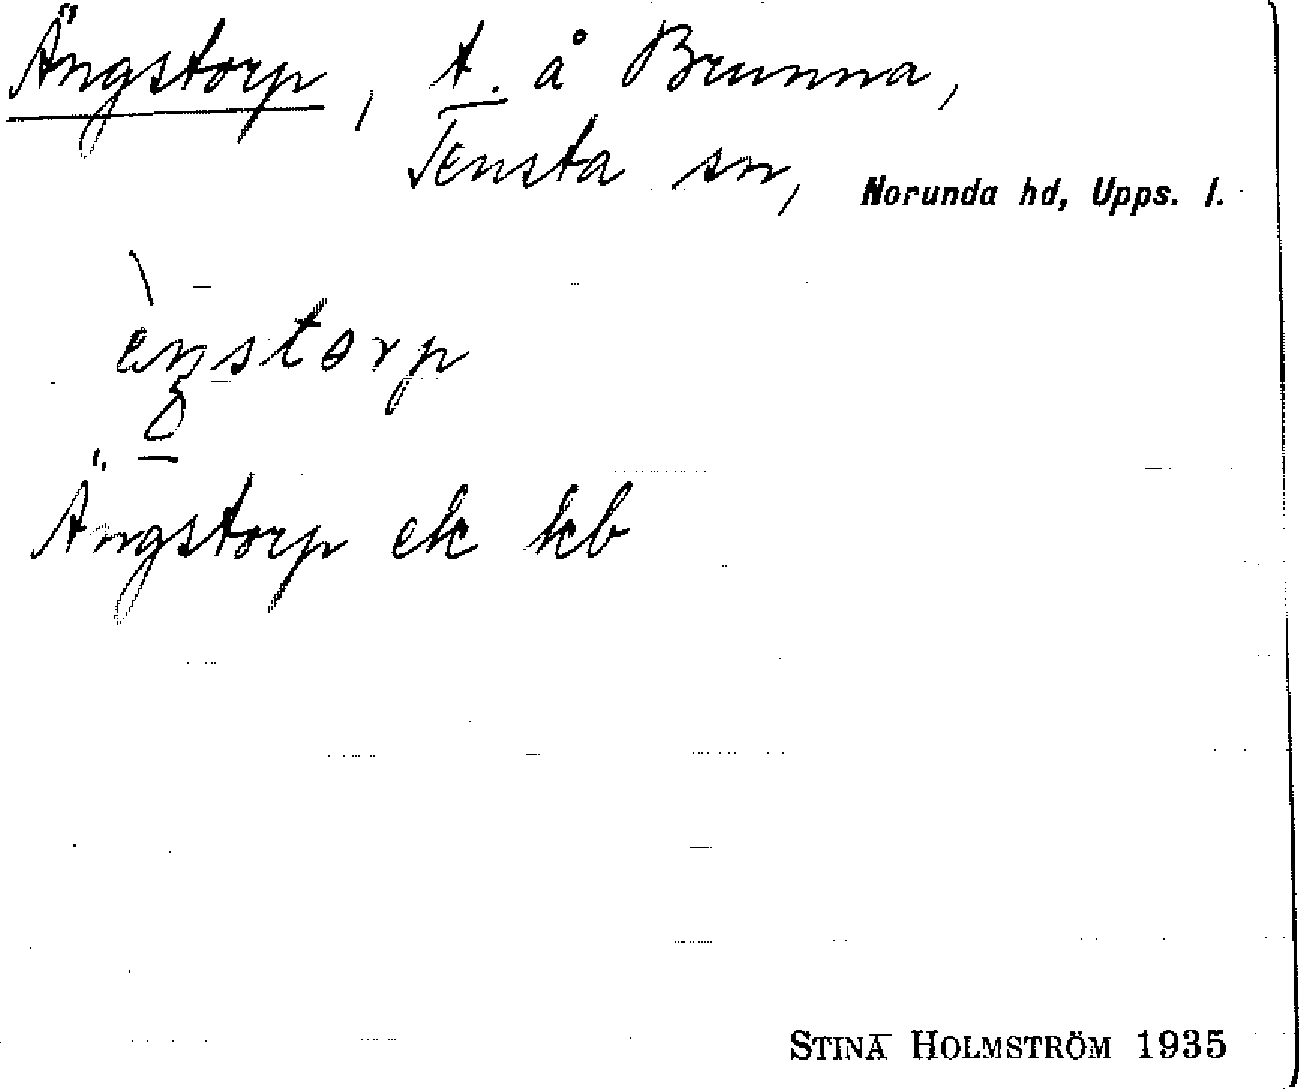 Ängstorp, t. å Brunna,
Tensta sn, Norunda hd, Upps. l.
Ängstorp ek kb
STINA HOLMSTRÖM 1935